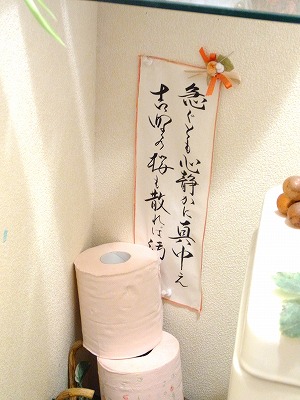 急ぐとも心静かに真中え
吉野の桜も散れば汚